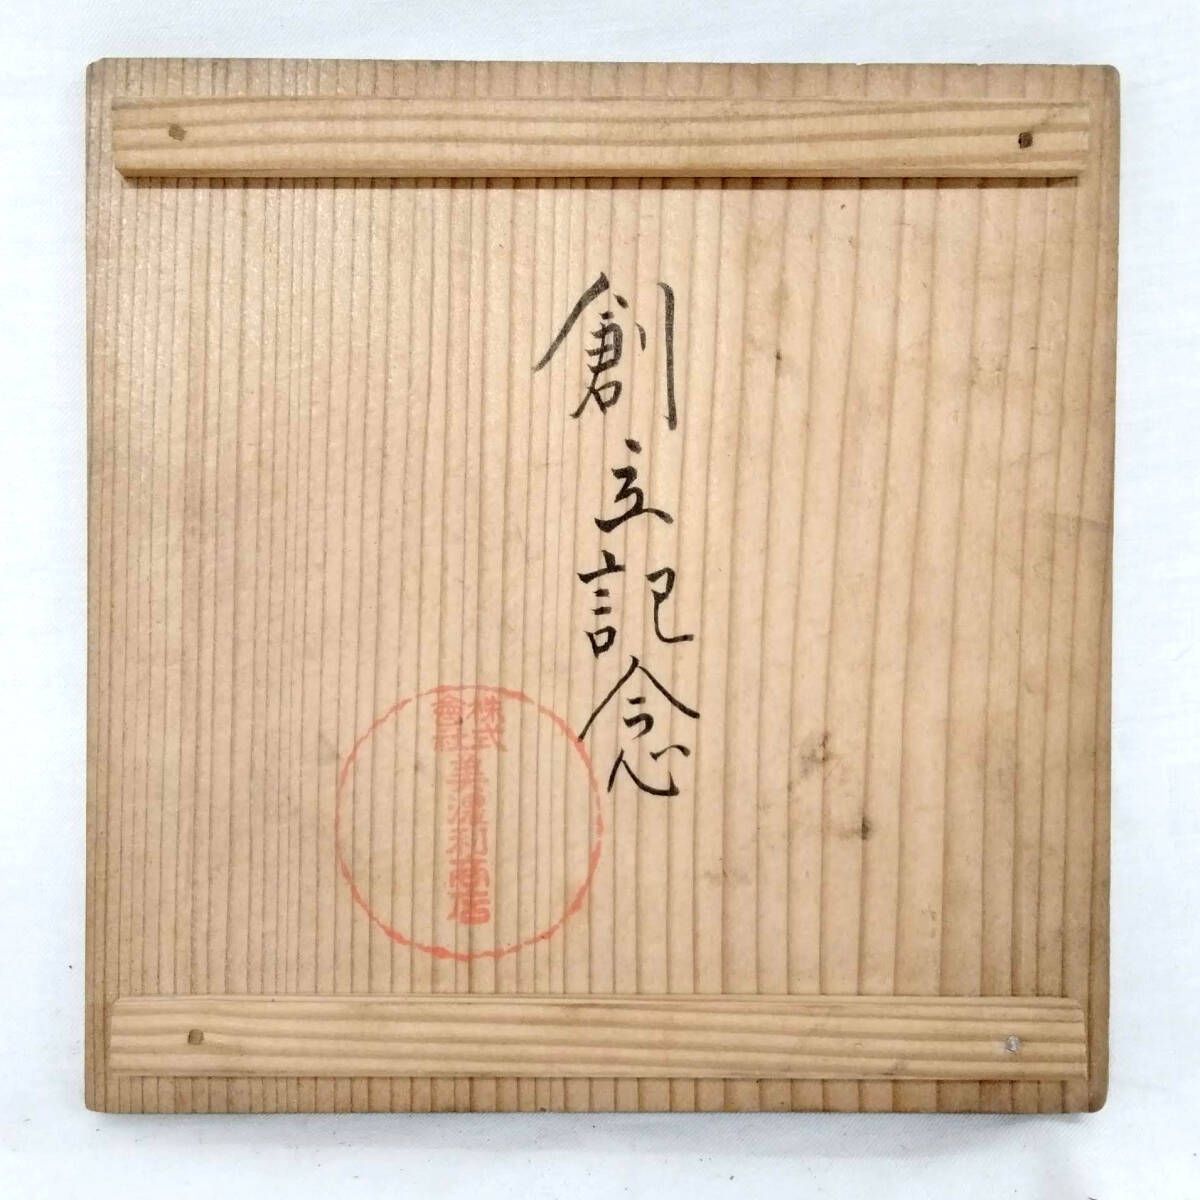 創立記念
株式
會社
美濃利商店